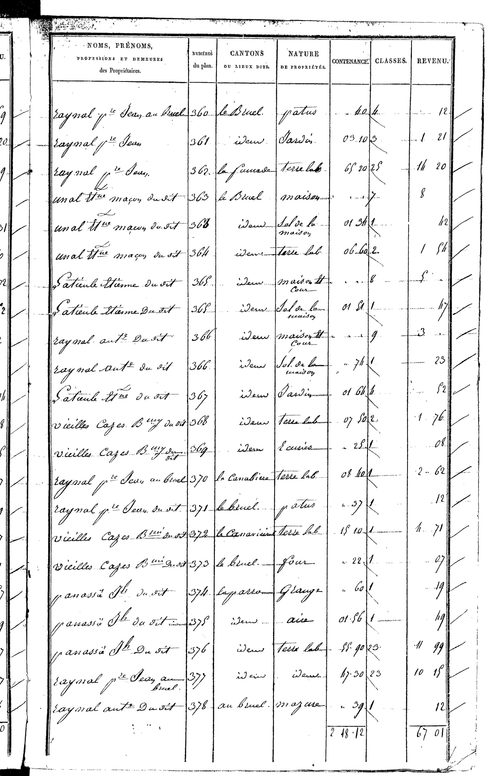 NOMS, PRÉNOMS, PROFESSIONS ET DEMEURES des Propriétaires. NUMÉROS du plan. CANTONS OU LIEUX DITS. NATURE DE PROPRIÉTÉS. CONTENANCE. CLASSES. REVENU.
raynal pre Jean au bruel 360 le Bruel patus 40 4 12
raynal pre Jean 361 idem Jardin 03 10 3 1 21
raynal pre Jean 362 terre lab 65 20 25 14 20
unal ttne maçon du dit 363 le Bruel maison 7 8
unal ttne maçon du dit 363 idem Sol de la maison 01 34 1 42
unal ttne maçon du dit 364 idem terre lab 06 60 2 1 54
Etienne du dit 365 idem maison et Cour 8 5
Etienne Du dit 365 idem Sol de la maison 01 51 1 47
raynal ante Du dit 366 idem maison et Cour 9 3
raynal ante du dit 366 idem Sol de la maison 74 1 23
du dit 367 idem Jardin 01 68 4 52
vieilles Cazes Bmy du dit 368 idem terre lab 07 50 2 1 76
vieilles Cazes Bmy du dit 369 idem 25 1 08
raynal pre Jean au bruel 370 la Canabiere terre lab 08 40 1 2-62
raynal pre Jean du dit 371 le bruel patus 37 1 12
vieilles Cazes Bmi du dit 372 terre lab 15 10 1 4 71
vieilles Cazes Bmi du dit 373 le bruel four 22 1 07
panassié Jh du dit 374 laparro Grange 60 1 19
panassié Jh du dit 375 idem aire 01-56 1 49
panassié Jh Du dit 376 idem terre lab 55-90 23 11 99
raynal pre Jean au bruel 377 idem idem 47-30 23 10 15
raynal ante Du dit 378 au bruel mazure 39 1 12
2 48-12 67 01